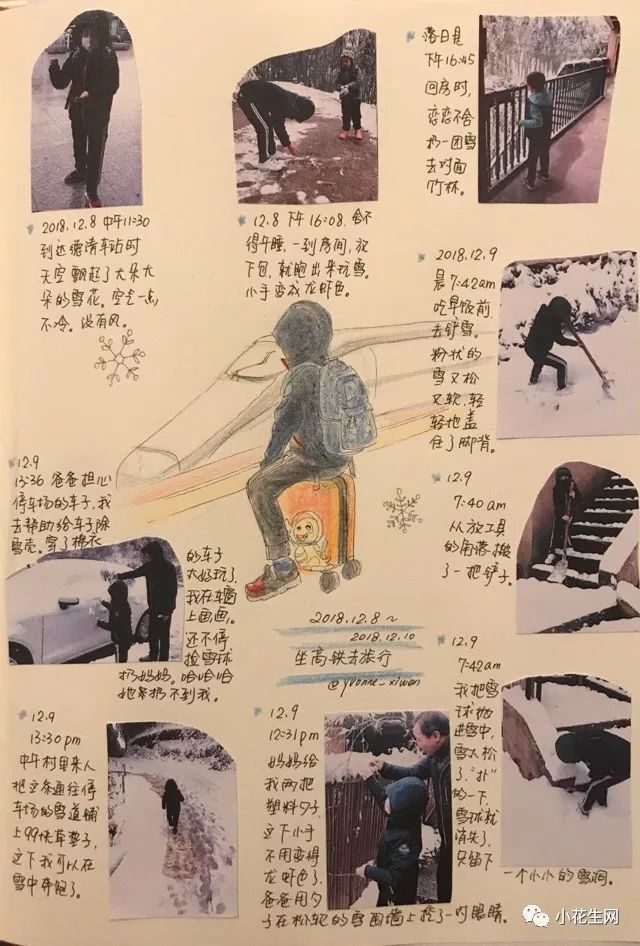 2018.12.8 中午11:30
到达德清车站时
天空飘起了大朵大
朵的雪花。空无一点
不冷。没有风。
12.8 下午 16:08. 舍不
得午睡,一到房间,放
下包,就跑出来玩雪。
小手变成龙虾色。
落日是
下午16:45
回房时,
恋恋不舍
扔一团雪
去对面
竹林。
2018.12.9
晨 7:42am
吃早饭前,
去铲雪。
粉状的
雪又松
又软,轻
轻地盖
住了脚背。
12.9
7:40 am
从放工具
的角落搬
了一把铲子。
12.9
7:42am
我把雪
球抛
进雪中,
雪太松
了,“扑”
的一下,
雪球就
消失了,
只留下
一个小小的雪洞。
12.9
13:36 爸爸担心
停车场的车子,我
去帮助给车子除
雪壳。穿了棉衣
的车子
太好玩了,
我在车窗
上画画。
还不停
捡雪球
扔妈妈。哈哈哈
她却扔不到我。
2018.12.8~
2018.12.10
坐高铁去旅行
@yvonne_xiwen
12.9
13:30pm
中午村里来人
把这条通往停
车场的雪道铺
上99块草垫子,
这下我可以在
雪中奔跑了。
12.9
12:31pm
妈妈给
我两把
塑料勺子,
这下小手
不用变得
龙虾色了,
爸爸用勺
子在松软的雪围墙上挖了一对眼睛。
小花生网